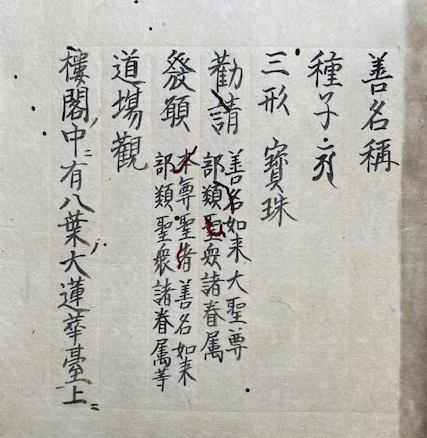 善名稱
種子
三形 寶珠
勸請 善名如来大聖尊
部類聖衆諸眷属
發願 本尊聖者善名如来
部類聖衆諸眷属等
道場觀
樓閣中ニ有八葉大蓮華臺上ニ